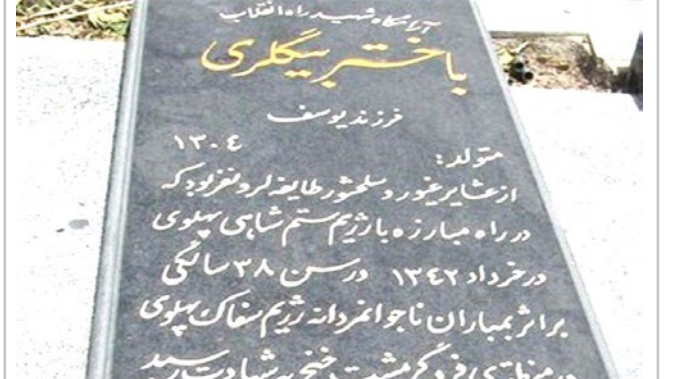 آرامگاه شهید راه انقلاب
باختر بیگلری
فرزند یوسف
متولد: ۱۳۰۴
از عشایر غیور و سلحشور طایفه لر و نفر بود که
در راه مبارزه با رژیم ستم شاهی پهلوی
در خرداد ۱۳۴۲ در سن ۳۸ سالگی
بر اثر بمباران ناجوانمردانه رژیم سفاک پهلوی
در منطقه‌ی فردگر مشت خنج به شهادت رسید